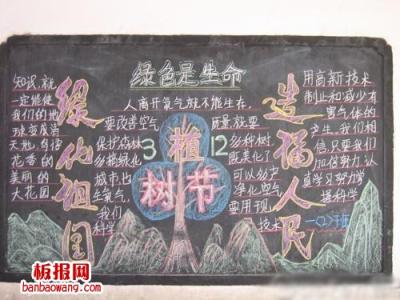 绿色是生命
知识,就
一定能使
我们的地
球变成满
天地,有
花香的
美丽的
大花园
绿化祖国
人离开氧气就不能生存,
要改善空气
质量,就要
保护森林
多植绿化
城市也
生氧气,
我们
科学
3 12
植
树节
多种树
既美化了
可以多产
净化空气
要用现
技术
造福人民
用高新技术
制止和减少有
害气体的
产生,我们相
信,只要我们
如何努力,认
真学习努力学
握科学
板报网
banbaowang.com